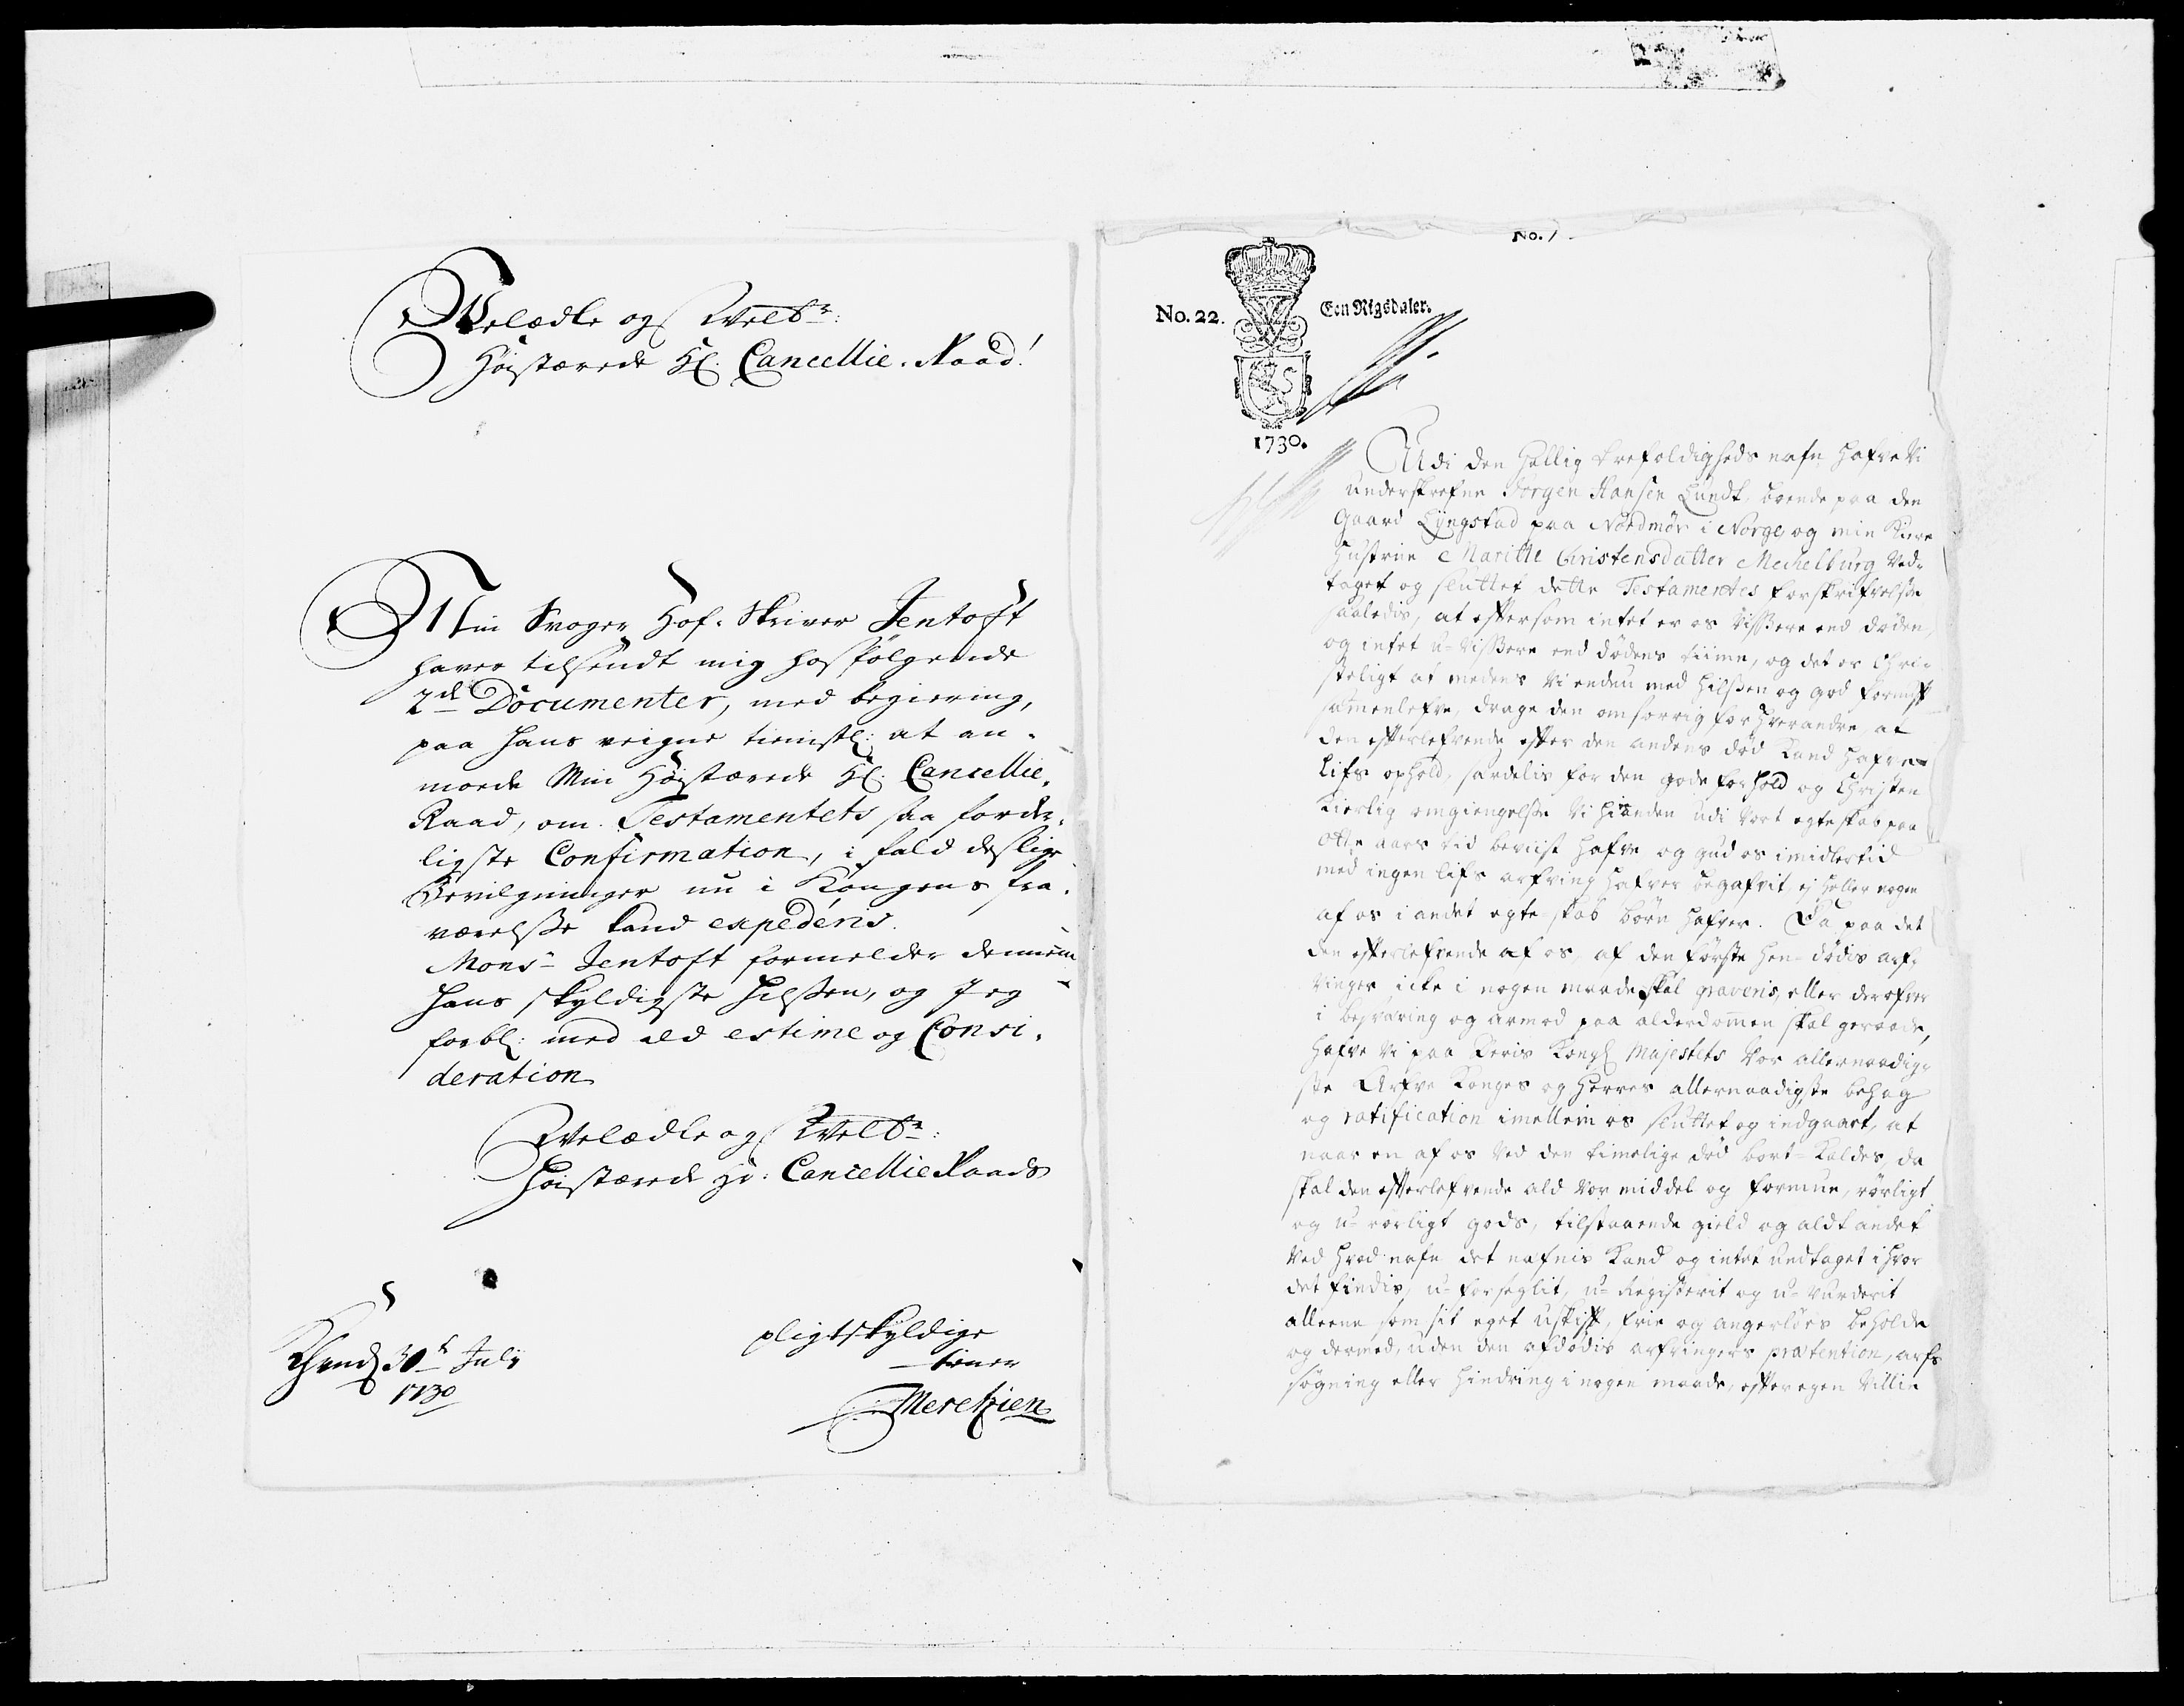 Velædle og Velb:r
Høistærede Hr: Cancellie-Raad!
Min Svoger Hof-Skriver Jentoft
haver tilsendt mig hosfølgende
2de Documenter, med begiering,
paa hans veigne tienistl: at an-
mode Min Høistærede Hr: Cancellie-
Raad, om Testamentets saa forder-
ligste Confirmation, i fald deslige
Bevilgninger nu i Kongens fra-
værelsse kand expederis.
Monsr Jentoft formelder dennem
hans skyldigste hilssen, og Jeg
forbl: med ald estime og Consi-
deration
Velædle og Velb:r
Høistærede Hr: Cancellie Raads
pligtskyldige
tiener
Meretzien
30te Julii
1730
No. 1
No. 22.
Een Rigsdaler.
1730.
Udi den Hellig trefoldigheds nafn hafve Vi
underskrefne Jørgen Hansen Lundt, boende paa den
Gaard Lÿngstad paa Nordmør i Norge, og min Kiære
Hustrue Maritte Christensdatter Mechelburg Ved-
taget og sluttet dette Testamentes forskrifvelsse
saaledis, at eftersom intet er os Vissere end døden,
og intet u-Vissere end dødens tiime, og det er Chri-
steligt at medens Vi endnu med hilssen og god fornuft
sammenlefve, drage den omsorrig for hverandre, at
den efterlefvende efter den andens død kand hafve
Lifs ophold, særdelis for den gode forhold og Christen
Kierlig omgiengelsse Vi hinanden udi Vort egteskab paa
Otte aars tid beviist hafve, og gud os imidlertid
med ingen lifs arfving hafver begafvit, ej heller nogen
af os i andet egte-skab børn hafver. Da paa det
den efterlefvende af os, af den første hen-dødis arf-
vinger icke i nogen maade skal graveris, eller derofver
i besværing og armod paa alderdommen skal geraade,
hafve Vi paa Deris Kongl Majestets Vor allernaadig-
ste Arfve Konges og Herres allernaadigste behag
og ratification imellem os sluttet og indgaaet, at
naar en af os Ved den timelige død bort-kaldes, da
skal den efterlefvende ald Vor middel og formue, rørligt
og u-rørligt gods, tilstaaende gield og aldt andet
Ved hvad nafn det nafnis kand og intet undtaget i hvor
det findis, u-forseglit, u-Registerit og u-Vurderit
alleene som sit eget uskift, frie og angerløs beholde
og dermed, uden den afdødis arfvingers prætention, arfs
søgning eller hindring i nogen maade, efter egen Villie